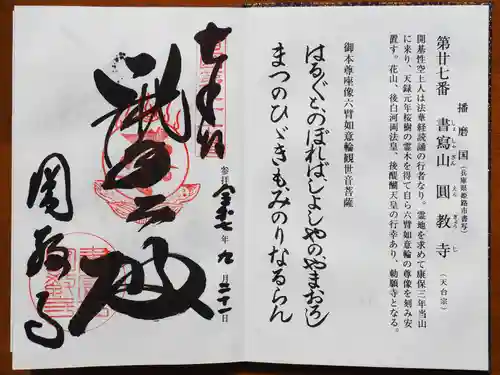 第廿七番
播磨国
(兵庫県姫路市書写)
書寫山 圓教寺
しょしゃざん えんぎょうじ
(天台宗)
開基性空上人は法華経読誦の行者なり。霊地を求めて康保三年当山
に来り、天禄元年桜樹の霊木を得て自ら六臂如意輪の尊像を刻み安
置す。花山、後白河両法皇、後醍醐天皇の行幸あり、勅願寺となる。
御本尊座像六臂如意輪観世音菩薩
はるばるとのぼればしょしゃのやまおろし
まつのひびきもみのりなるらん
奉拝
参拝 令和七年九月二十一日
圓教寺